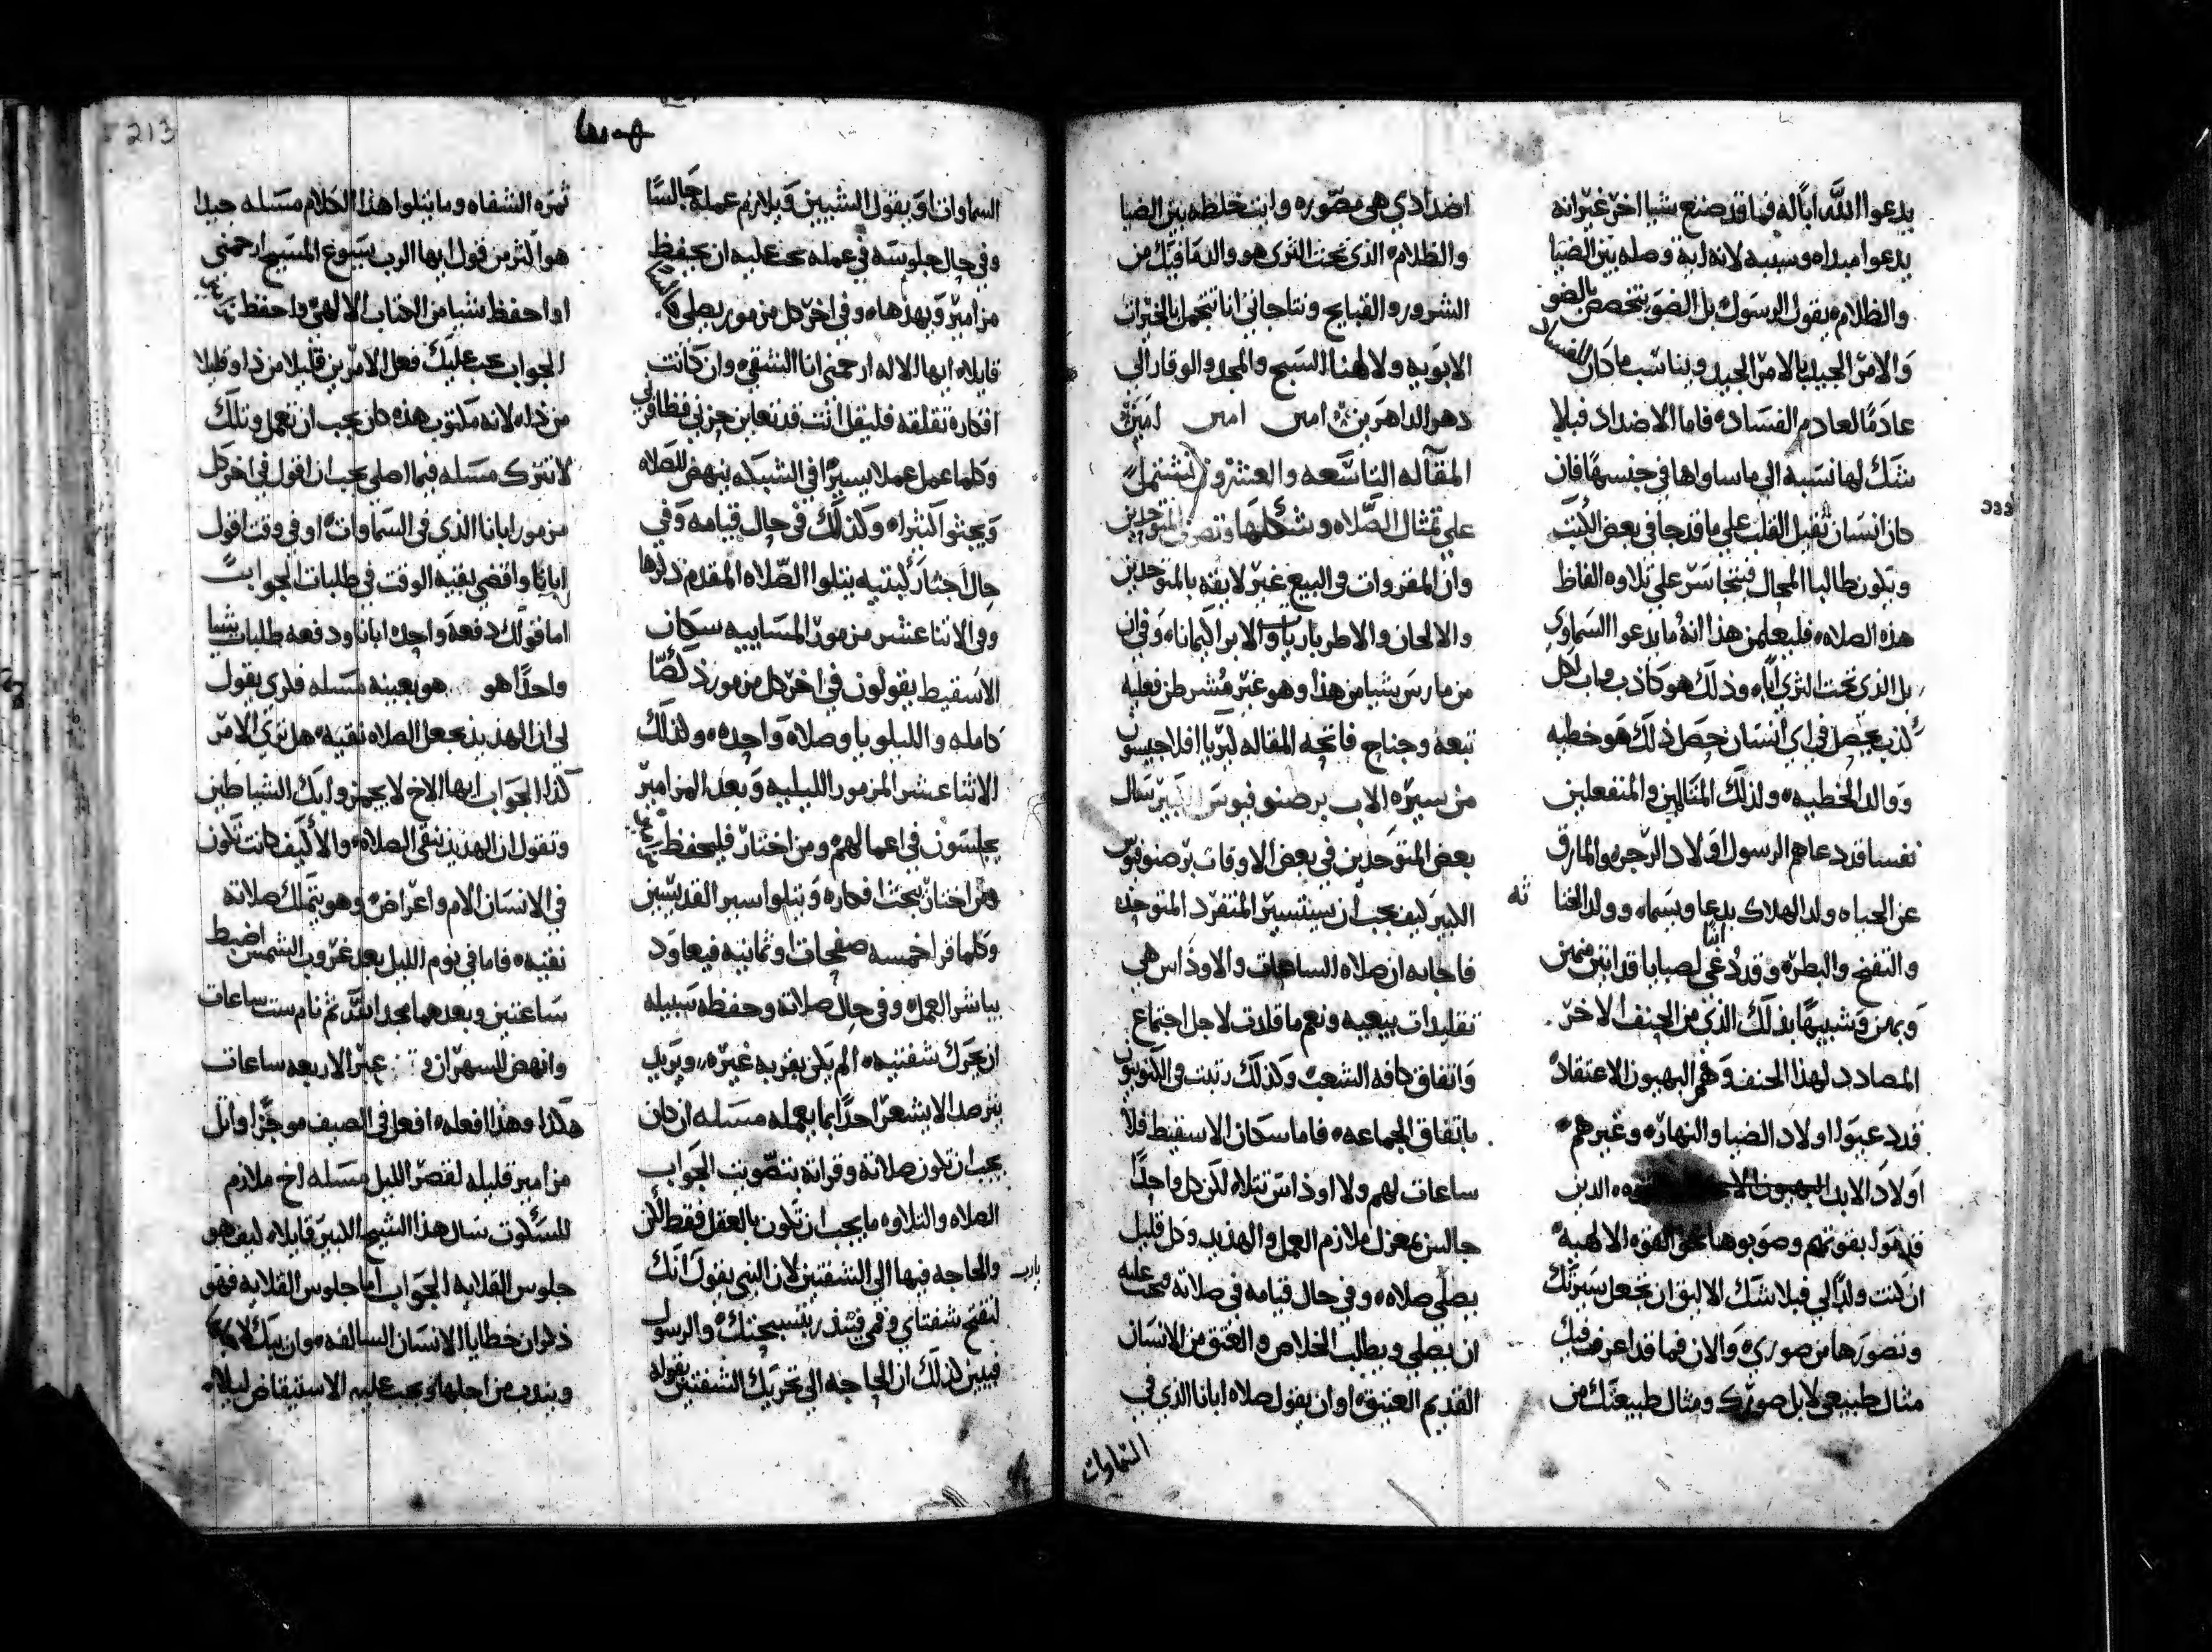 يدعوا الله اباً له فما قد صنع شيا اخر غير انه
يدعوا مبداه وسببه لانه اية وصله بين الضيا
والظلام يقول الرسول بل الضو يتخصص بالضو
والامر الجيد بالامر الجيد ويناسب ما كان
عادماً لعادم الفساد فاما الاضداد فبلا
شك لها نسبه الي ما ساواها في جنسها فان
كان انسان ثقيل القلب علي ما قد جا في بعض الكتب
ويكون طالبا المحال فيتجاسر علي تلاوه الفاظ
هذه الصلاه فليعلم من هذا انه ما يدعوا السماوي
بل الذي تحت الثري اباً وذلك هو كاذب واب لكل
كذب يحصل في اي انسان حصل ذلك هو خطيه
ووالد الخطيه ولذلك المتالمين والمنفعلين
نفسا قد دعاهم الرسول اولاد الرجز والمارق
عن الحياه ولد الهلاك يدعا ويسما وولد الخنا
والتفنخ والبطره وقد دعي لصبايا قد انثن منهن
وبهن وشبيهاً بذلك الذي من الجنف الاخر
المضادد لهذا الجنف وهم البهيون الاعتقاد
قد دعيوا اولاد الضيا والنهار وغيرهم
اولاد الاب البهيون الا الذين
قد قوا بقوتهم وصوبوها نحو القوه الالهيه
ان كنت ولداً لي فبلا شك الاليق ان تجعل سيرتك
وتصورها من صوري والان فما قد اعرف فيك
مثال طبيعي لا بل صورتك ومثال طبيعتك من
اضدادي هي مصوره واين خلطه بين الضيا
والظلام الذي تحت الثري هو والدها فيك من
الشرور والقبايح ونتاجاني انا تتجمل بالخيرات
الابويه ولالهنا السبح والمجد والوقار الي
دهر الداهرين امين امين امين
المقاله التاسعه والعشرون تشتمل
علي تمثال الصلاه وشكلها وتصرف المتوحدين
وان المقروات في البيع غير لايقه بالمتوحدين
والالحان والاطروباريات والابراكيمانا وفي ان
من مارس شيا من هذا وهو غير مشرطن فعليه
تبعه وجناح فاتحه المقاله كيريا افلاجيسون
من سيره الاب برصنوفيوس الكبير سال
بعض المتوحدين في بعض الاوقات برصنوفيوس
الكبير كيف يجب ان يستسير المنفرد المتوحد
فاجابه ان صلاه الساعات والاوداس هي
تقليدات بيعيه ونعم ما قلدت لاجل اجتماع
واتفاق كافه الشعب وكذلك رتبت في الكنوبيون
باتفاق الجماعه فاما سكان الاسقيط فلا
ساعات لهم ولا اوداس تتلا لكن كل واحداً
جالس بمعزل ملازم العمل والهذيذ وكل قليل
يصلي صلاه وفي حال قيامه في صلاته يجب عليه
ان يصلي ويطلب الخلاص والعتق من الانسان
القديم العتيق او ان يقول صلاه ابانا الذي في
السماوات
213
السماوات او يقول الشيين ويلازم عمله جالسا
وفي حال جلوسه في عمله يجب عليه ان يحفظ
مزامير ويهذها وفي اخر كل مزمور يصلي
قايلا ايها الاله ارحمني انا الشقي وان كانت
افكاره تقلقه فليقل انت قد تعاين حزني فظافرني
وكلما عمل عملا يسيرا في الشبكه ينهض للصلاه
ويجثوا كثيرا وكذلك في حال قيامه وفي
حال اجثا ركبتيه يتلوا الصلاه المقدم ذكرها
وفي الاثنا عشر مزمور المساييه سكان
الاسقيط يقولون في اخر كل مزمور ذكصا
كامله والليلويا وصلاه واحده ولذلك
الاثنا عشر المزمور الليليه وبعد المزامير
يجلسون في اعمالهم ومن اختار فليحفظ
ومن اختار يبحث افكاره ويتلوا سير القديسين
وكلما قرا خمسه صفحات او ثمانيه فيعاود
يباشر العمل وفي حال صلاته وحفظه سبيله
ان يحرك شفتيه الم يكن بقربه غيره ويريد
يترصد الا يشعر احداً بما يعمله مسله ان كان
يجب ان تكون صلاته وقراته بتصويت الجواب
الصلاه والتلاوه ما يجب ان تكون بالعقل فقط لكن
والحاجه فيها الي الشفتين لان النبي يقول انك
يارب
لتفتح شفتاي وفمي فينذر بتسبحتك والرسول
فيبين كذلك ان الحاجه الي تحريك الشفتين بقوله
ثمره الشفاه وما يتلوا هذا الكلام مسله جيدا
هو اكثر من قول ايها الرب يسوع المسيح ارحمني
او احفظ شيا من الكتاب الالهي واحفظ
الجواب يجب عليك فعل الامرين قليلا من ذا وقليلا
من ذاه لانه مكتوب هذه كان يجب ان تعمل وتلك
لا تترك مسله فيما اصلي يجب ان اقول في اخر كل
مزمور ابانا الذي في السماوات او في وقت اقول
ابانا واقضي بقيه الوقت في طلبات الجواب
اما قولك دفعه واحده ابانا ودفعه طلبات شيا
واحداً هو هو بعينه مسله فلري يقول
لي ان الهذيذ يجعل الصلاه نقيه هل تري الامر
كذا الجواب ايها الاخ لا يجهزوا بك الشياطين
وتقول ان الهذيذ ينقي الصلاه والا كيف كانت تكون
في الانسان الام واعراض وهو يتملك صلاته
نقيه فاما في نوم الليل بعد غروب الشمس اضبط
ساعتين وبعدهما مجد الله ثم نام ست ساعات
وانهض للسهران عبر الاربعه ساعات
هكذا وهذا افعله افعل في الصيف موجزا واتل
مزامير قليله لقصر الليل مسله اخ ملازم
للسكوت سال هذا الشيخ الكبير قايلا كيف هو
جلوس القلايه الجواب اما جلوس القلايه فهو
ذكران خطايا الانسان السالفه وان يبك
ويندب من اجلها ويجب عليه الاستيقاظ ليلا